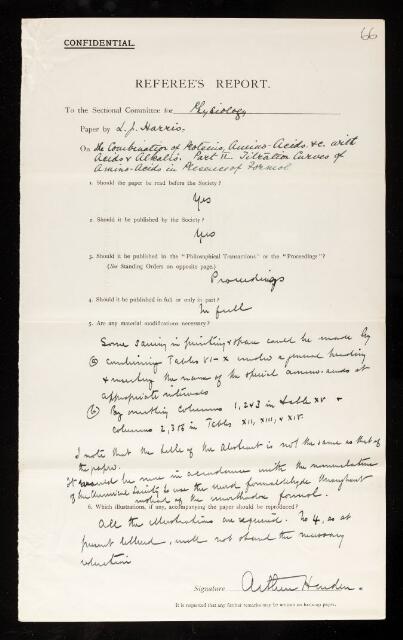 66
CONFIDENTIAL.
REFEREE'S REPORT.
To the Sectional Committee for Physiology
Paper by L. J. Harris.
On the Combination of Proteins, Amino-Acids, &c. with
Acids & Alkalis. Part II. Titration Curves of
Amino-Acids in Presence of Formol
1. Should the paper be read before the Society?
Yes
2. Should it be published by the Society?
Yes
3. Should it be published in the "Philosophical Transactions" or the "Proceedings"?
(See Standing Orders on opposite page.)
Proceedings
4. Should it be published in full or only in part?
In full
5. Are any material modifications necessary?
Some saving in printing & space could be made by
(a) combining Tables VI–X under a general heading
& inserting the name of the special amino-acids at
appropriate intervals
(b) By omitting columns 1, 2 & 3 in table XV &
columns 2, 3 & 6 in Tables XII, XIII, & XIV.
I note that the title of the Abstract is not the same as that of
the paper.
It would be more in accordance with the nomenclature
of the Chemical Society to use the word formaldehyde throughout
instead of the unorthodox formol.
6. Which illustrations, if any, accompanying the paper should be reproduced?
All the illustrations are required. No 4, as at
present lettered, will not stand the necessary
reduction
Signature Arthur Harden.
It is requested that any further remarks may be written on backing pages.